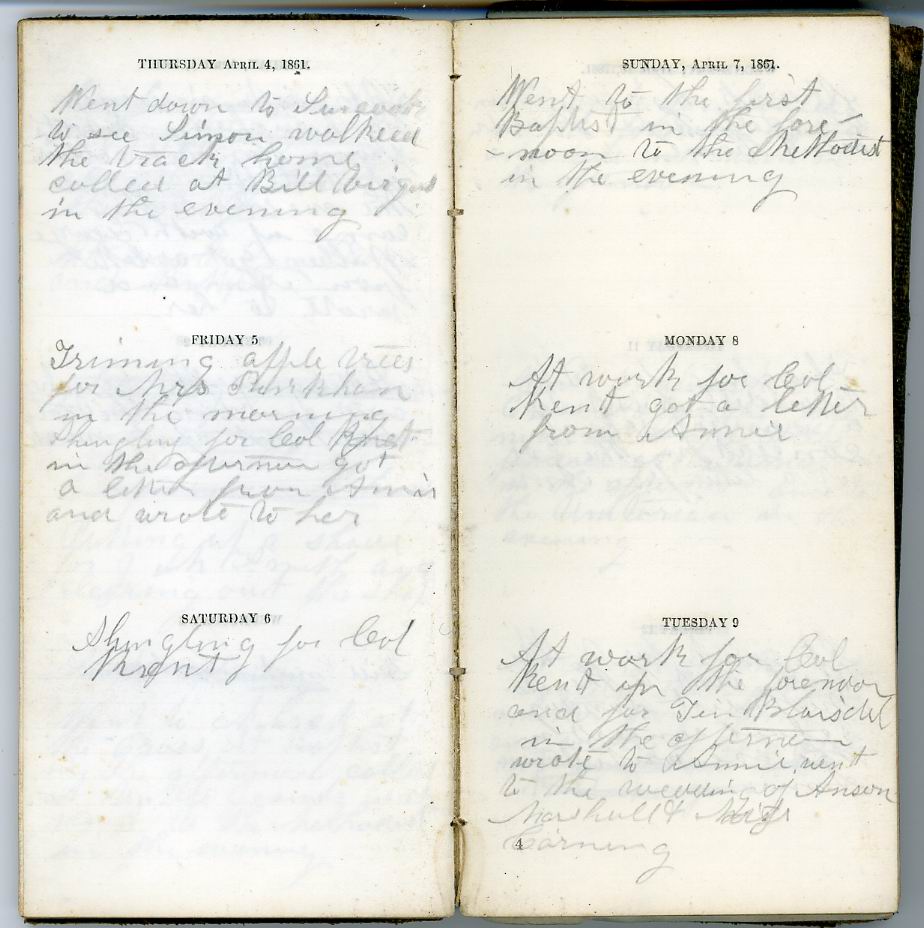 THURSDAY APRIL 4, 1861.
Went down to Suncook
to see Simon walked
the track home
called at Bill
in the evening
FRIDAY 5
Triming apple trees
for Mrs
in the morning
Shingling for Col Kent
in the afternon got
a letter from Annie
and wrote to her
SATURDAY 6
Shingling for Col
Kent
SUNDAY, APRIL 7, 1861.
Went to the first
Baptist in the fore-
-noon to the Methodist
in the evening
MONDAY 8
At work for Col
Kent got a letter
from Annie
TUESDAY 9
At work for Col
Kent in the forenoon
and for Tim Blaisdel
in the afternon
wrote to Annie went
to the wedding of Anson
Marshall &
4